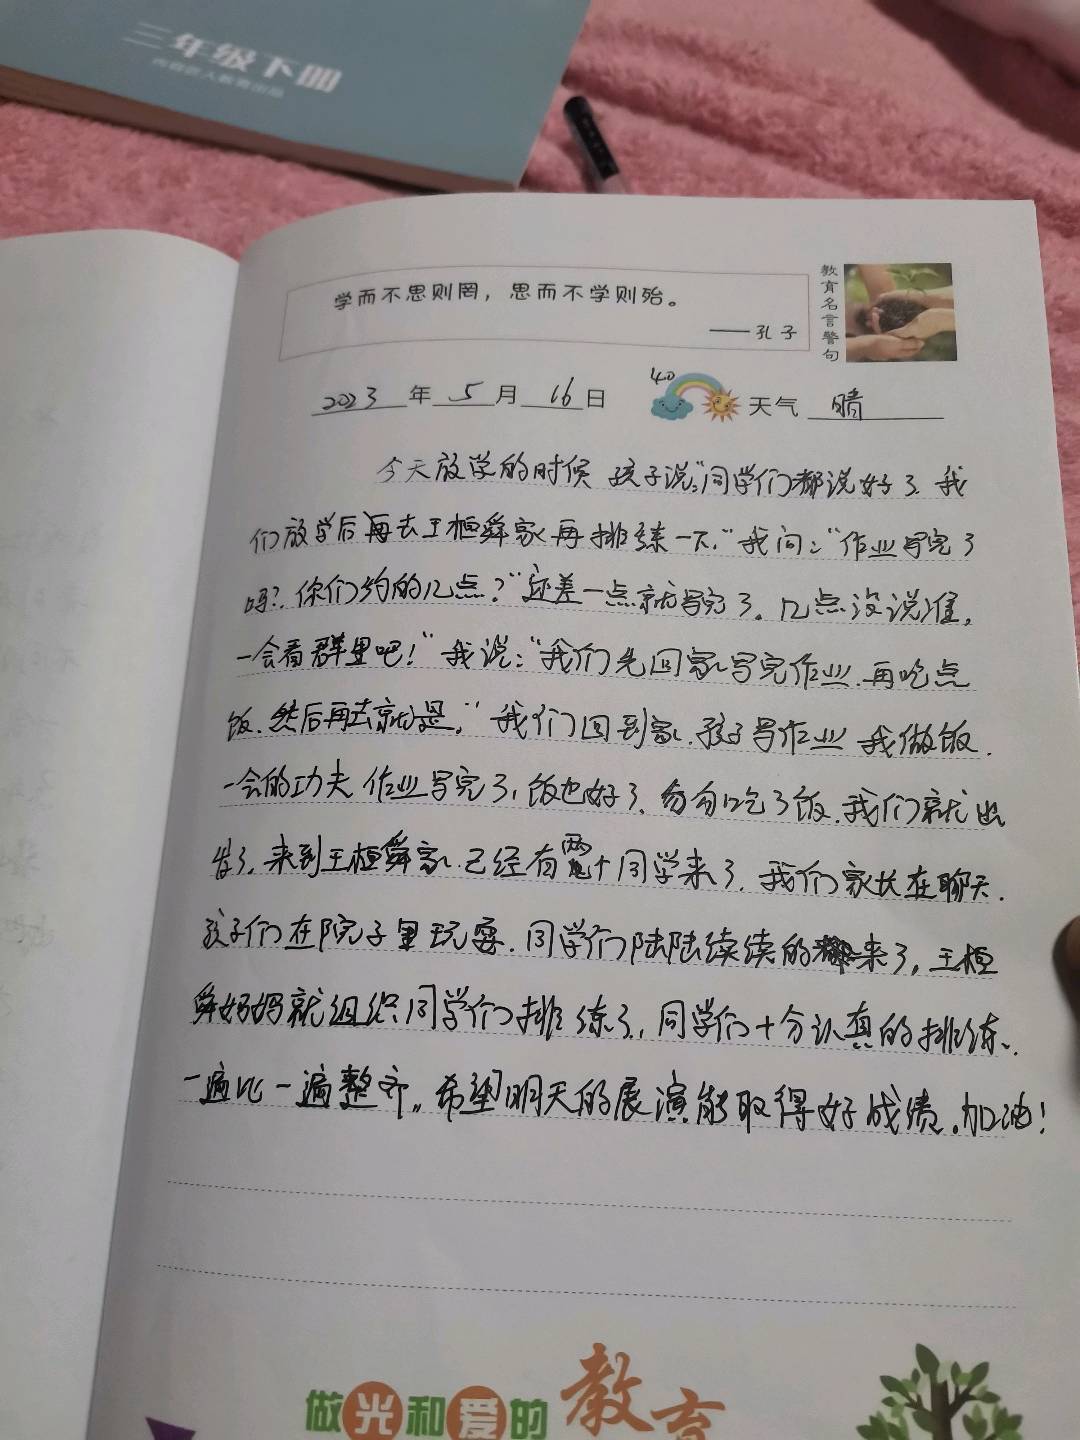 三年级下册
学而不思则罔，思而不学则殆。
——孔子
教育名言警句
2023年5月16日 40 天气 晴
今天放学的时候 孩子说："同学们都说好了.我
们放学后再去王桓舜家再排练一下."我问："作业写完了
吗?.你们约的几点？"还差一点就写完了。几点没说准,
一会看群里吧！"我说："我们先回家写完作业.再吃点
饭.然后再去就是。"我们回到家.孩子写作业 我做饭.
一会的功夫 作业写完了,饭也好了.匆匆吃了饭.我们就出
发了.来到王桓舜家.已经有两个同学来了.我们家长在聊天.
孩子们在院子里玩耍.同学们陆陆续续的来了,王桓
舜妈妈就组织同学们排练了.同学们十分认真的排练.
一遍比一遍整齐。希望明天的展演能取得好成绩.加油!
做光和爱的教育